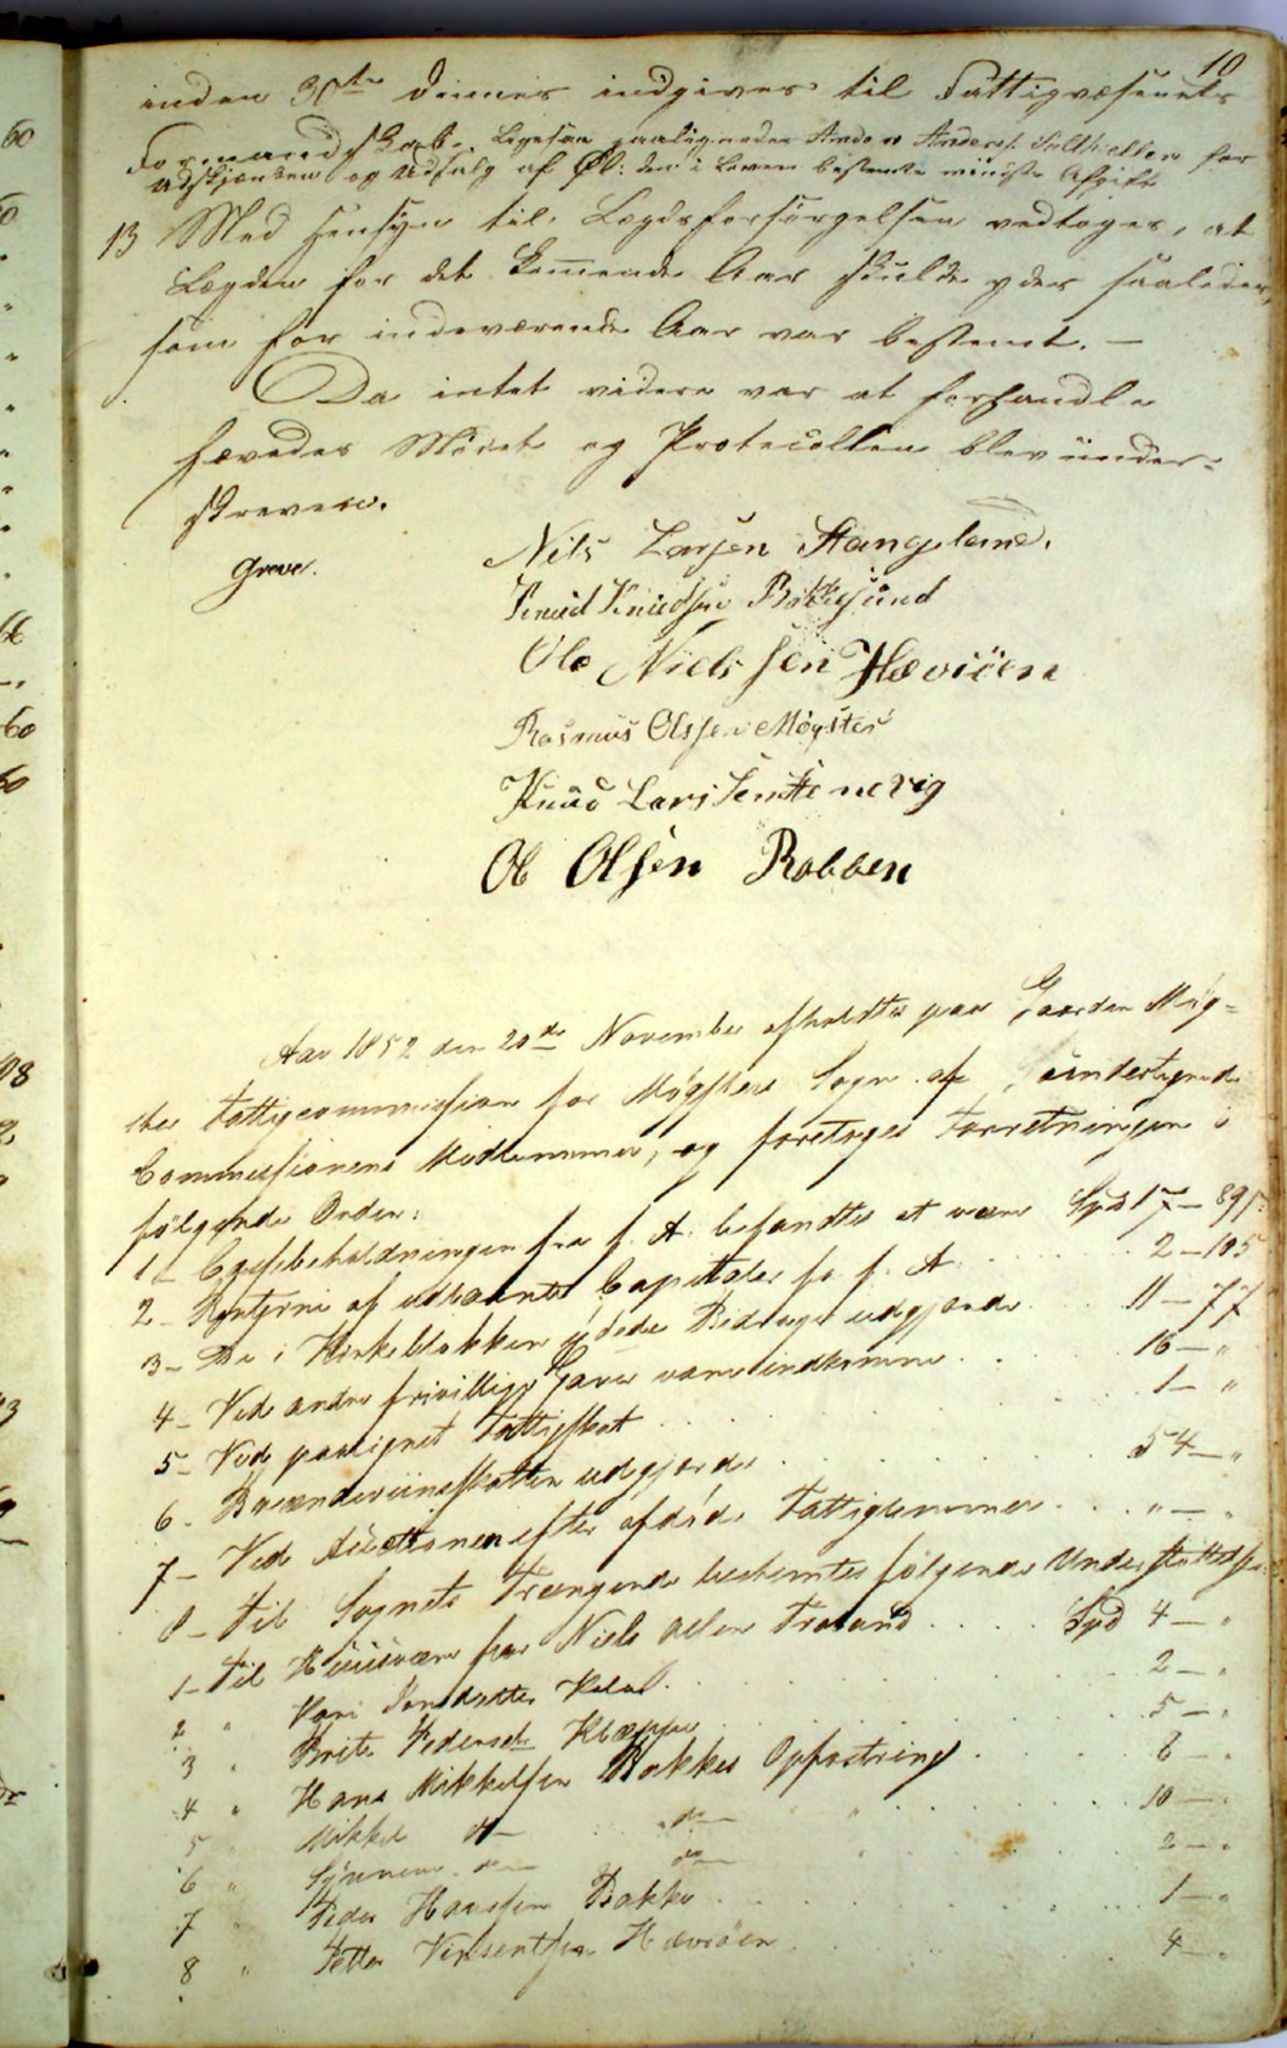 10
inden 30te dennes indgives til Fattigvæsenets
Formandskab. Ligesaa paalignedes Anders Anders. for
Udskjænken og Udsalg af Øl: den i Loven bestemte mindste Afgift
13 Med Hensyn til Lægdsforsørgelsen vedtoges, at
Lægden for det kommende Aar skulde ydes saaledes,
som for indeværende Aar var bestemt. —
Da intet videre var at forhandle
hævedes Mødet og Protocollen blev under-
skreven.
Greve. Nils Larsen Stangeland.
Knud Knudsen Bakkesund
Ole Nielssen Hævröen
Rasmus Olssen Møgster
Knud Larssen Stenevig
Ole Olsen Rabben
Aar 1852 den 20de November afholdtes paa Gaarden Møg-
ster Fattigcommission for Møgsters Sogn af undertegnede
Commissionens Medlemmer, og foretoges Forretningen i
følgende Orden:
1 – Cassebeholdningen fra f. A. befandtes at være Spd 17 – 89
2 – Renterne af udlaante Capitaler fo. f. A. . . . . 2 – 105
3 – De i Kirkeblokken ydede Bidrage udgjorde . . 11 – 77
4 – Ved andre frivillige Gaver vare indkomne . . . 16 – "
5 – Ved paalignet Fattigskat . . . . . 1 – "
6 – Brændeviinsskatten udgjorde . . . . . 54 – "
7 – Ved Auctionen efter afdøde Fattiglemmer . . . " – "
8 – Til Sognets Trængende bestemtes følgende Understøttelse:
1 – Til Huusvære for Niels Olsen . . . . Spd 4 – "
2 " Kari . . . . . 2 – "
3 " Brite Pedersdtr Kleppe . . . . . 5 – "
4 " Hans Mikkelsen Bakkes Opfostring . . . . 8 – "
5 " Mikkel do do " . . . . . 10 – "
6 " do do " . . . . . 2 – "
7 " Peder Hansen Bakke . . . . . 1 – "
8 " Petter Vinsentsen Hævröen . . . . . 4 – "